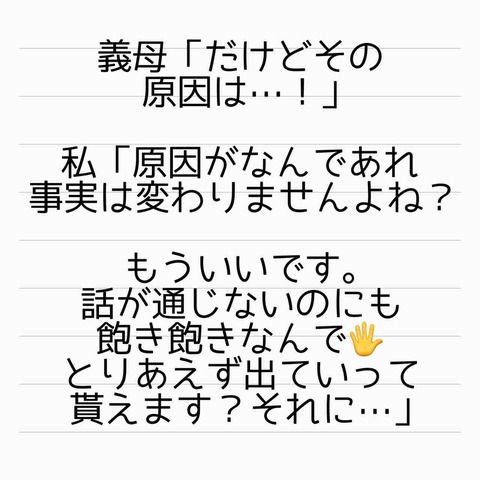 義母「だけどその
原因は…！」
私「原因がなんであれ
事実は変わりませんよね？
もういいです。
話が通じないのにも
飽き飽きなんで🖐
とりあえず出ていって
貰えます？それに…」